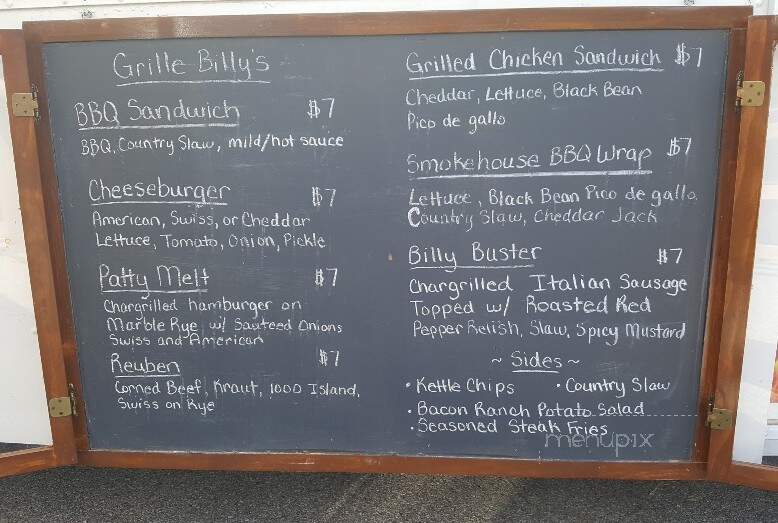 Grille Billy's
BBQ Sandwich $7
BBQ, Country Slaw, mild/hot sauce
Cheeseburger $7
American, Swiss, or Cheddar
Lettuce, Tomato, Onion, Pickle
Patty Melt $7
Chargrilled hamburger on
Marble Rye w/ Sauteed Onions
Swiss and American
Reuben $7
Corned Beef, Kraut, 1000 Island,
Swiss on Rye
Grilled Chicken Sandwich $7
Cheddar, Lettuce, Black Bean
Pico de gallo
Smokehouse BBQ Wrap $7
Lettuce, Black Bean Pico de gallo,
Country Slaw, Cheddar Jack
Billy Buster $7
Chargrilled Italian Sausage
Topped w/ Roasted Red
Pepper Relish, Slaw, Spicy Mustard
~ Sides ~
• Kettle Chips • Country Slaw
• Bacon Ranch Potato Salad
• Seasoned Steak Fries
menupix